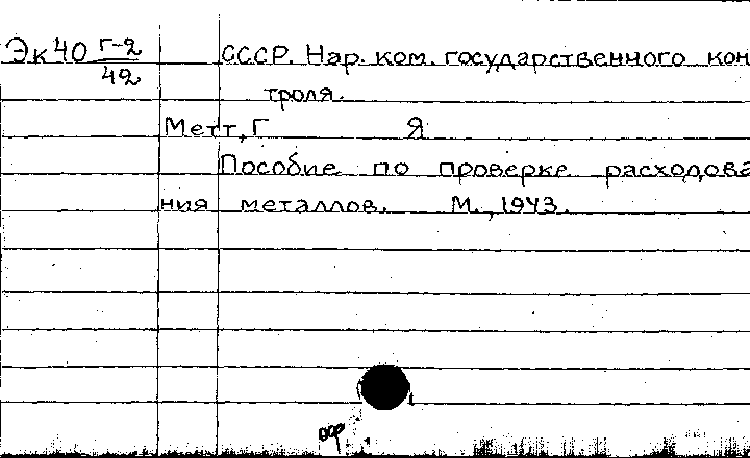 Эк40 Г-2/42 СССР. Нар. ком. государственного кон
троля.
Метт, Г Я
Пособие по проверке расходова
ния металлов. М., 1943.